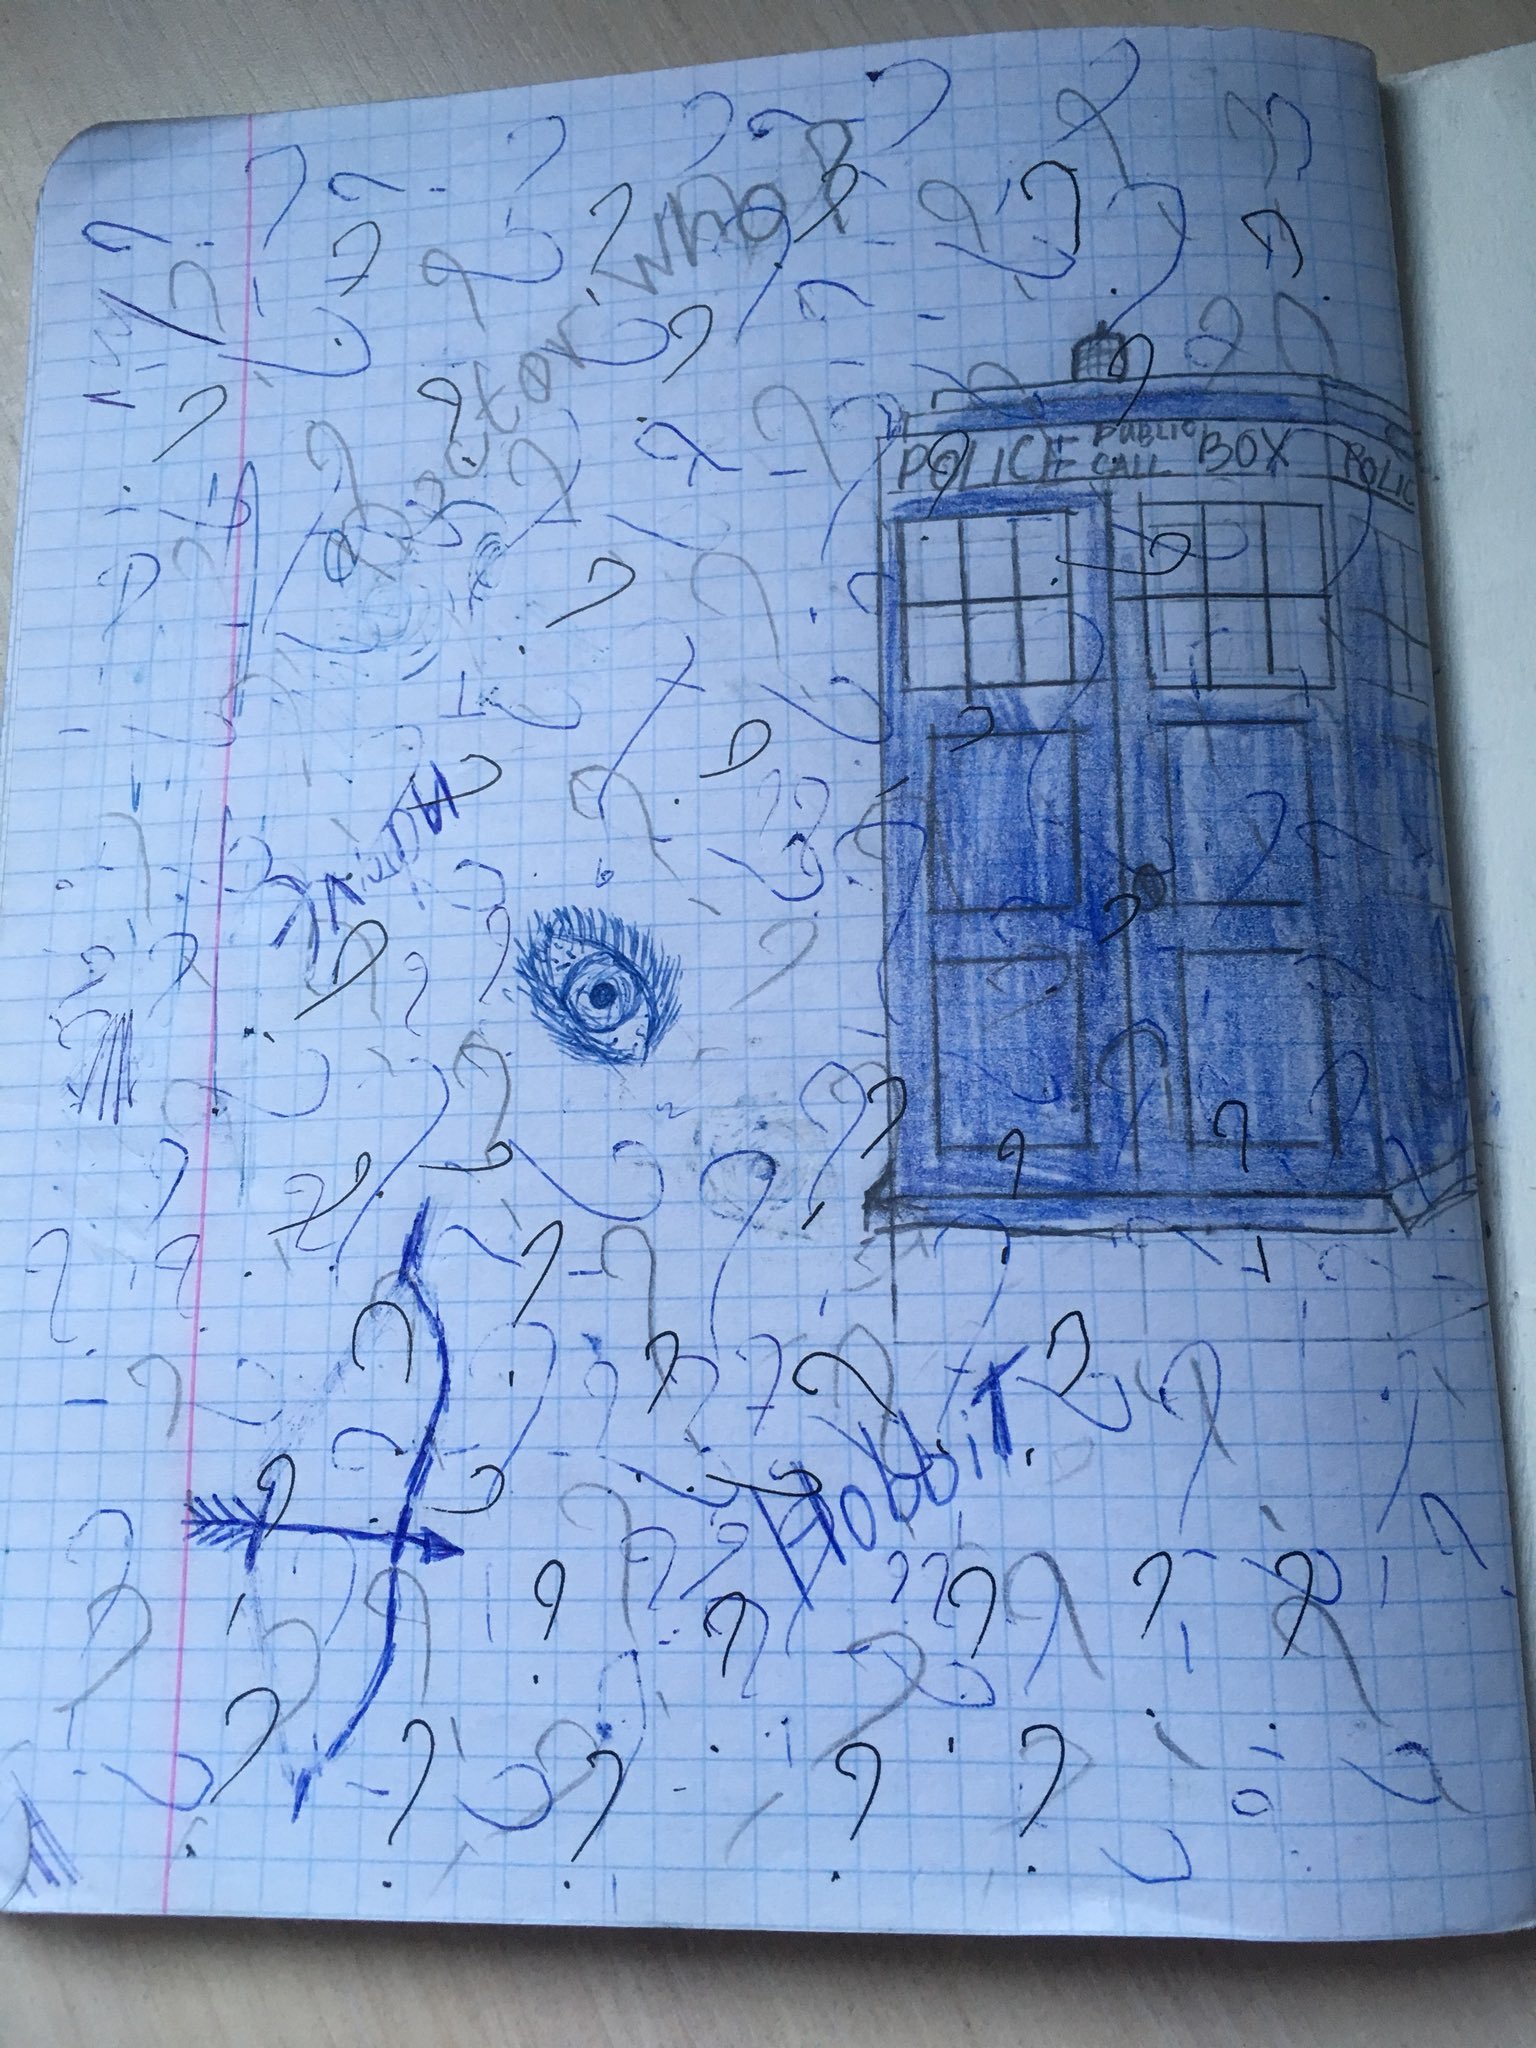 Doctor who?
POLICE PUBLIC CALL BOX
POLIC
Hobbit
?